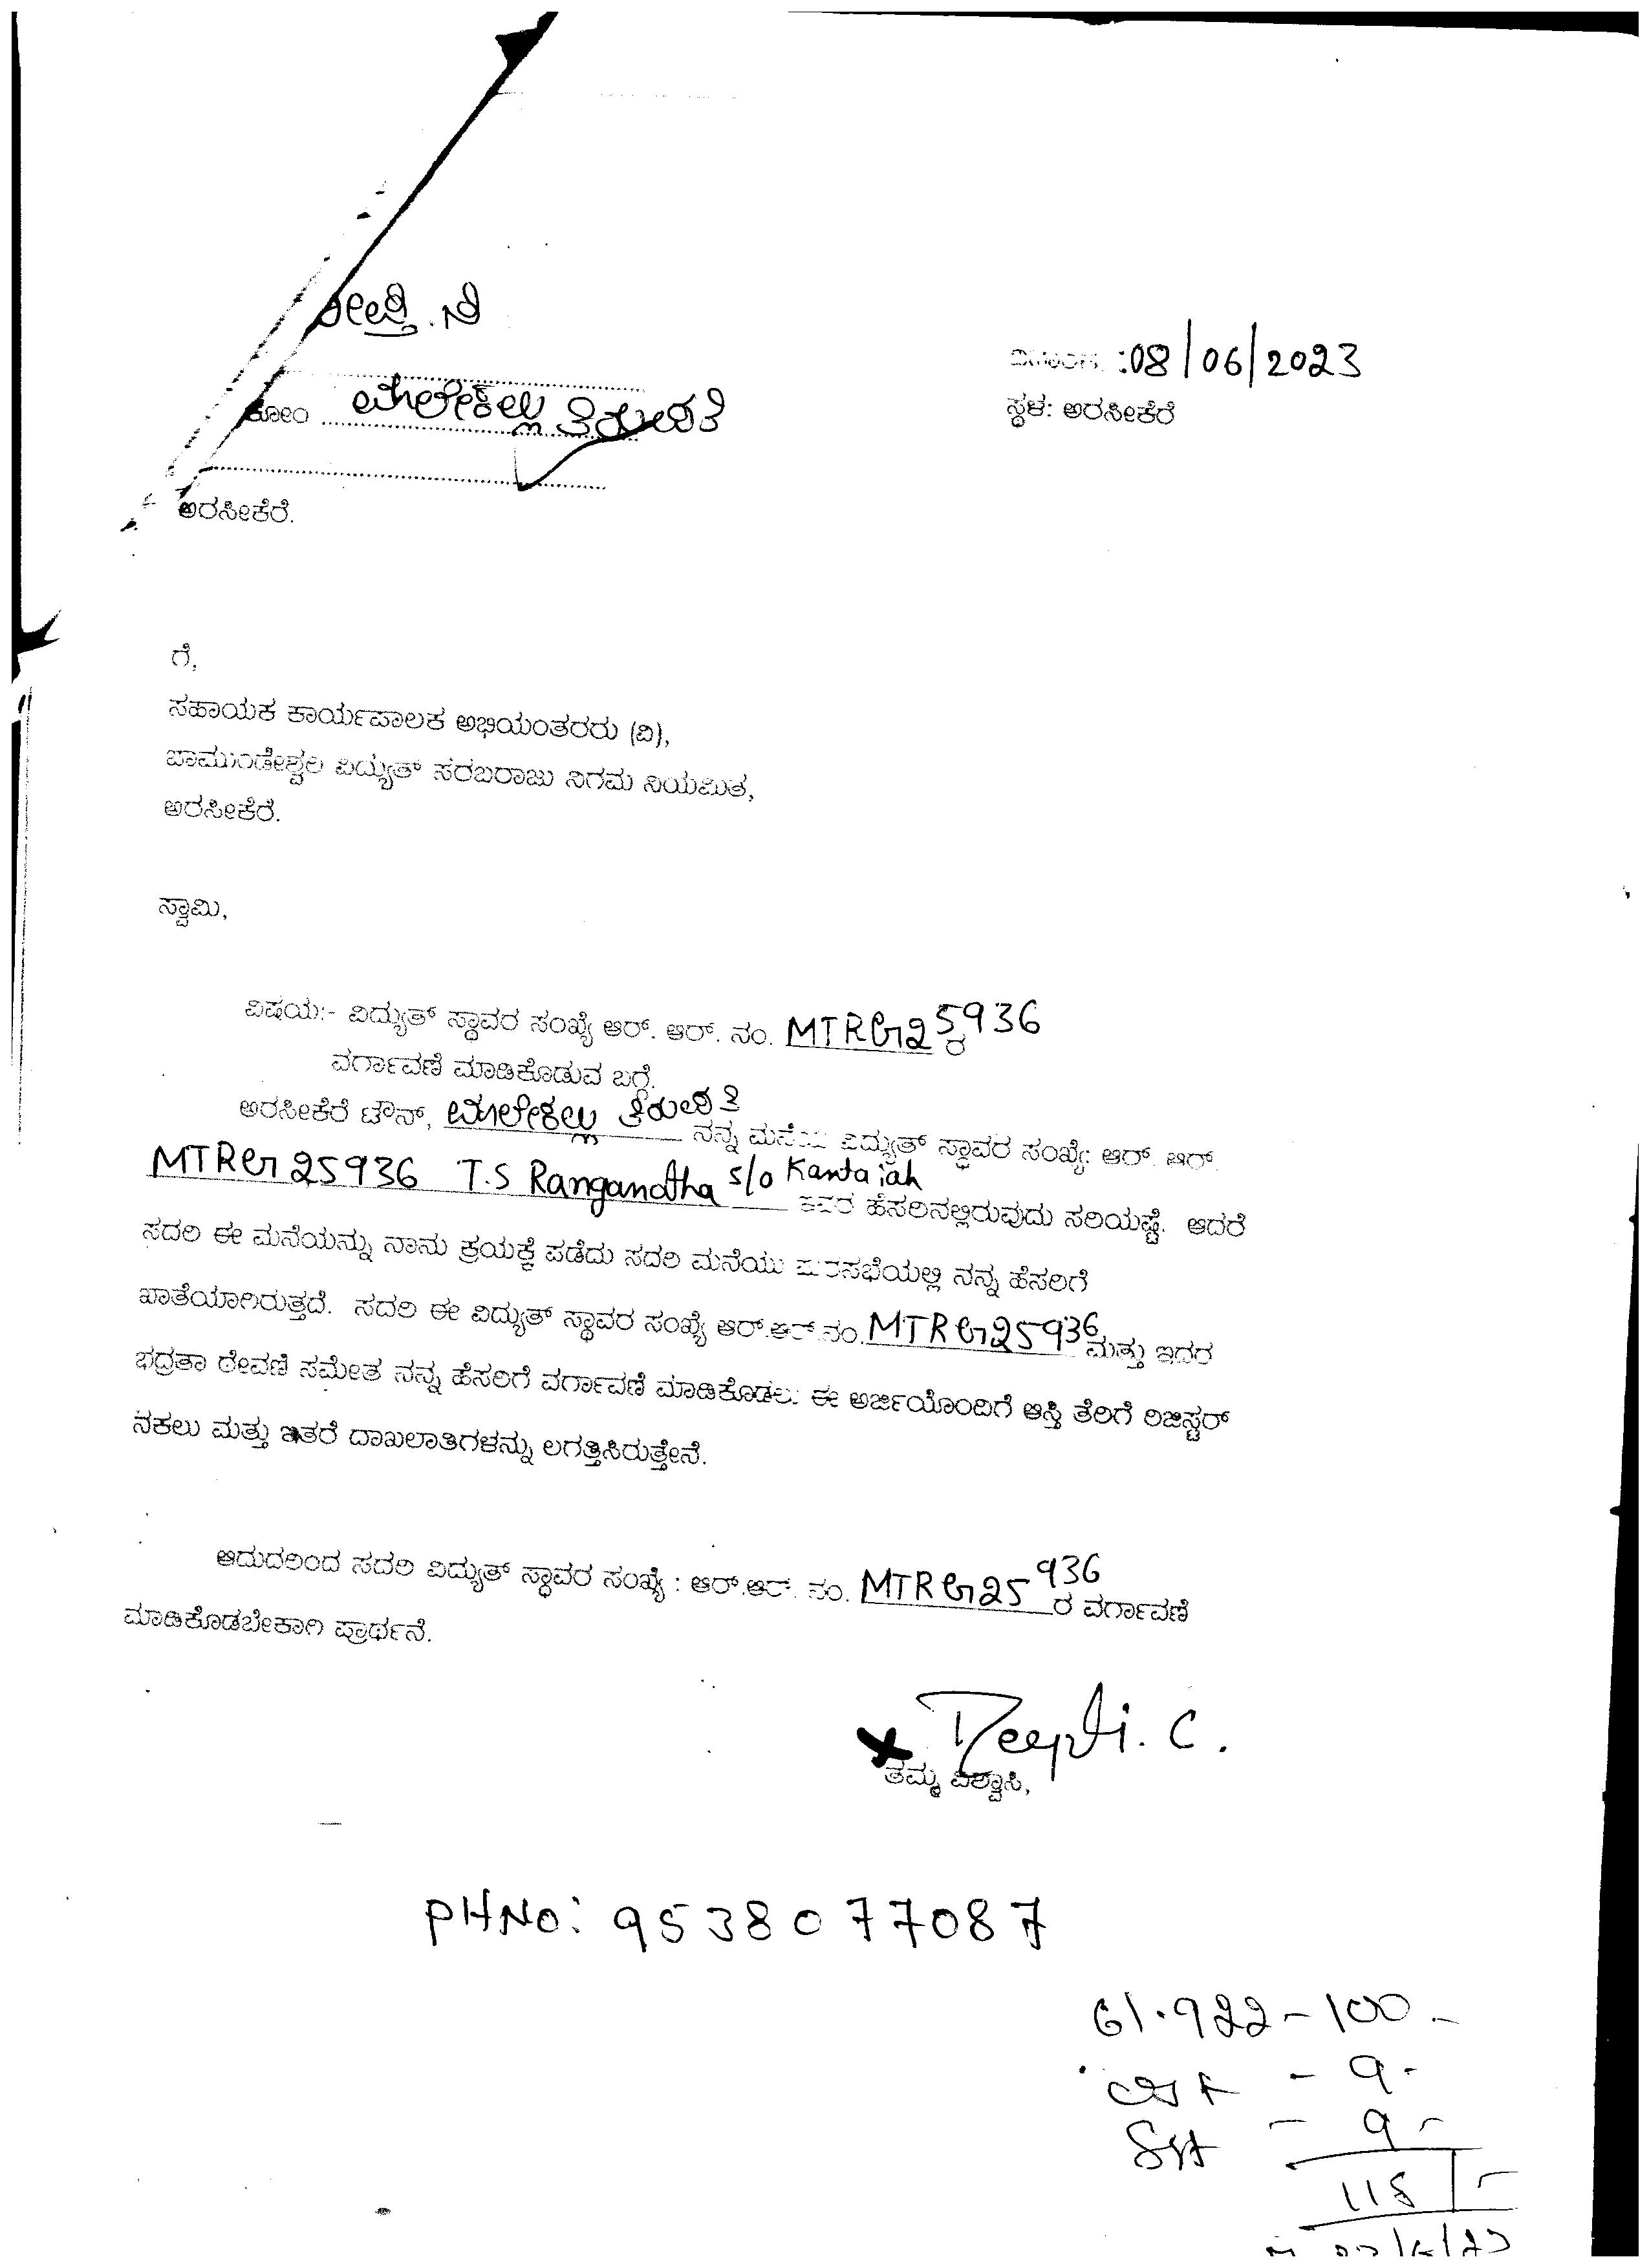 ದಿನಾಂಕ :08/06/2023
ಕೋಂ ಮಾಲೇಕಲ್ಲು ತಿರುಪತಿ
ಸ್ಥಳ: ಅರಸೀಕೆರೆ
ಅರಸೀಕೆರೆ.
ಗೆ,
ಸಹಾಯಕ ಕಾರ್ಯಪಾಲಕ ಅಭಿಯಂತರರು (ವಿ),
ಚಾಮುಂಡೇಶ್ವರಿ ವಿದ್ಯುತ್ ಸರಬರಾಜು ನಿಗಮ ನಿಯಮಿತ,
ಅರಸೀಕೆರೆ.
ಸ್ವಾಮಿ,
ವಿಷಯ:- ವಿದ್ಯುತ್ ಸ್ಥಾವರ ಸಂಖ್ಯೆ ಆರ್. ಆರ್. ನಂ. MTRG25936 ರ
ವರ್ಗಾವಣೆ ಮಾಡಿಕೊಡುವ ಬಗ್ಗೆ.
ಅರಸೀಕೆರೆ ಟೌನ್, ಮಾಲೇಕಲ್ಲು ತಿರುಪತಿ ನನ್ನ ಮನೆಯ ವಿದ್ಯುತ್ ಸ್ಥಾವರ ಸಂಖ್ಯೆ: ಆರ್. ಆರ್.
MTRG25936 T.S Ranganatha s/o Kantaiah ಇವರ ಹೆಸರಿನಲ್ಲಿರುವುದು ಸರಿಯಷ್ಟೆ. ಆದರೆ
ಸದರಿ ಈ ಮನೆಯನ್ನು ನಾನು ಕ್ರಯಕ್ಕೆ ಪಡೆದು ಸದರಿ ಮನೆಯು ಪುರಸಭೆಯಲ್ಲಿ ನನ್ನ ಹೆಸರಿಗೆ
ಖಾತೆಯಾಗಿರುತ್ತದೆ. ಸದರಿ ಈ ವಿದ್ಯುತ್ ಸ್ಥಾವರ ಸಂಖ್ಯೆ ಆರ್.ಆರ್.ನಂ. MTRG25936 ಮತ್ತು ಇದರ
ಭದ್ರತಾ ಠೇವಣಿ ಸಮೇತ ನನ್ನ ಹೆಸರಿಗೆ ವರ್ಗಾವಣೆ ಮಾಡಿಕೊಡಲು ಈ ಅರ್ಜಿಯೊಂದಿಗೆ ಆಸ್ತಿ ತೆರಿಗೆ ರಿಜಿಸ್ಟರ್
ನಕಲು ಮತ್ತು ಇತರೆ ದಾಖಲಾತಿಗಳನ್ನು ಲಗತ್ತಿಸಿರುತ್ತೇನೆ.
ಆದುದರಿಂದ ಸದರಿ ವಿದ್ಯುತ್ ಸ್ಥಾವರ ಸಂಖ್ಯೆ : ಆರ್.ಆರ್. ನಂ. MTRG25936 ರ ವರ್ಗಾವಣೆ
ಮಾಡಿಕೊಡಬೇಕಾಗಿ ಪ್ರಾರ್ಥನೆ.
Deepti. C.
ತಮ್ಮ ವಿಶ್ವಾಸಿ,
PHNO: 9538077087
61.922 - 100
- 9
- 9
118